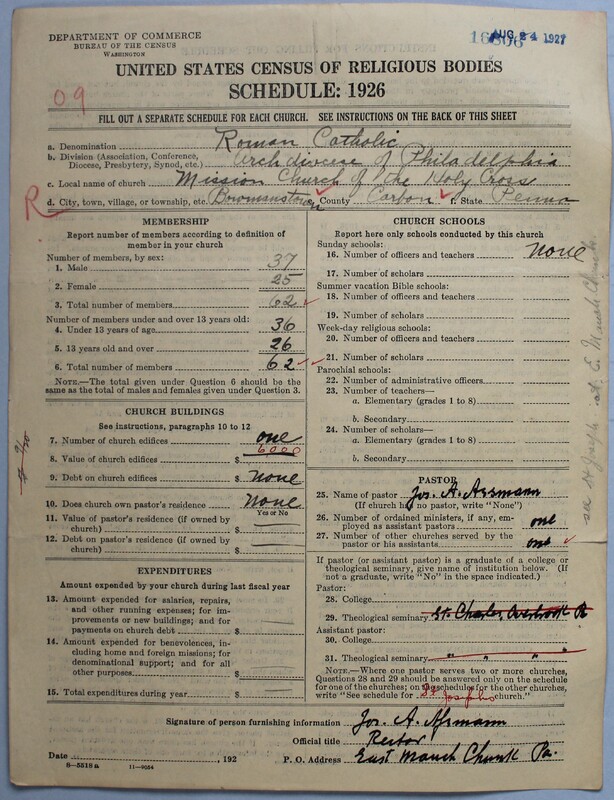 DEPARTMENT OF COMMERCE
BUREAU OF THE CENSUS
WASHINGTON
16806 AUG 24 1927
UNITED STATES CENSUS OF RELIGIOUS BODIES
SCHEDULE: 1926
09
FILL OUT A SEPARATE SCHEDULE FOR EACH CHURCH. SEE INSTRUCTIONS ON THE BACK OF THIS SHEET
a. Denomination Roman Catholic
b. Division (Association, Conference, Diocese, Presbytery, Synod, etc.) Archdiocese of Philadelphia
c. Local name of church Mission Church of the Holy Cross
R
d. City, town, village, or township, etc. Bowmanstown e. County Carbon f. State Penna
MEMBERSHIP
Report number of members according to definition of member in your church
Number of members, by sex:
1. Male 37
2. Female 25
3. Total number of members 62
Number of members under and over 13 years old:
4. Under 13 years of age 36
5. 13 years old and over 26
6. Total number of members 62
NOTE.—The total given under Question 6 should be the same as the total of males and females given under Question 3.
CHURCH BUILDINGS
See instructions, paragraphs 10 to 12
7. Number of church edifices one
8. Value of church edifices $ 6000
9. Debt on church edifices $ none
10. Does church own pastor's residence none
Yes or No
11. Value of pastor's residence (if owned by church) $ —
12. Debt on pastor's residence (if owned by church) $ —
EXPENDITURES
Amount expended by your church during last fiscal year
13. Amount expended for salaries, repairs, and other running expenses; for improvements or new buildings; and for payments on church debt $
14. Amount expended for benevolences, including home and foreign missions; for denominational support; and for all other purposes $
15. Total expenditures during year $
CHURCH SCHOOLS
Report here only schools conducted by this church
Sunday schools:
16. Number of officers and teachers none
17. Number of scholars
Summer vacation Bible schools:
18. Number of officers and teachers
19. Number of scholars
Week-day religious schools:
20. Number of officers and teachers
21. Number of scholars
Parochial schools:
22. Number of administrative officers
23. Number of teachers—
a. Elementary (grades 1 to 8)
b. Secondary
24. Number of scholars—
a. Elementary (grades 1 to 8)
b. Secondary
PASTOR
25. Name of pastor Jos. A. Assmann
(If church has no pastor, write "None")
26. Number of ordained ministers, if any, employed as assistant pastors one
27. Number of other churches served by the pastor or his assistants one
If pastor (or assistant pastor) is a graduate of a college or theological seminary, give name of institution below. (If not a graduate, write "No" in the space indicated.)
Pastor:
28. College
29. Theological seminary St. Charles, Overbrook Pa
Assistant pastor:
30. College
31. Theological seminary " " "
NOTE.—Where one pastor serves two or more churches, Questions 28 and 29 should be answered only on the schedule for one of the churches; on the schedules for the other churches, write "See schedule for St Josephs church."
Signature of person furnishing information Jos. A. Assmann
Official title Rector
Date , 192 P. O. Address East Mauch Chunk Pa.
8—5518a 11—9054
St Joseph at E. Mauch Chunk